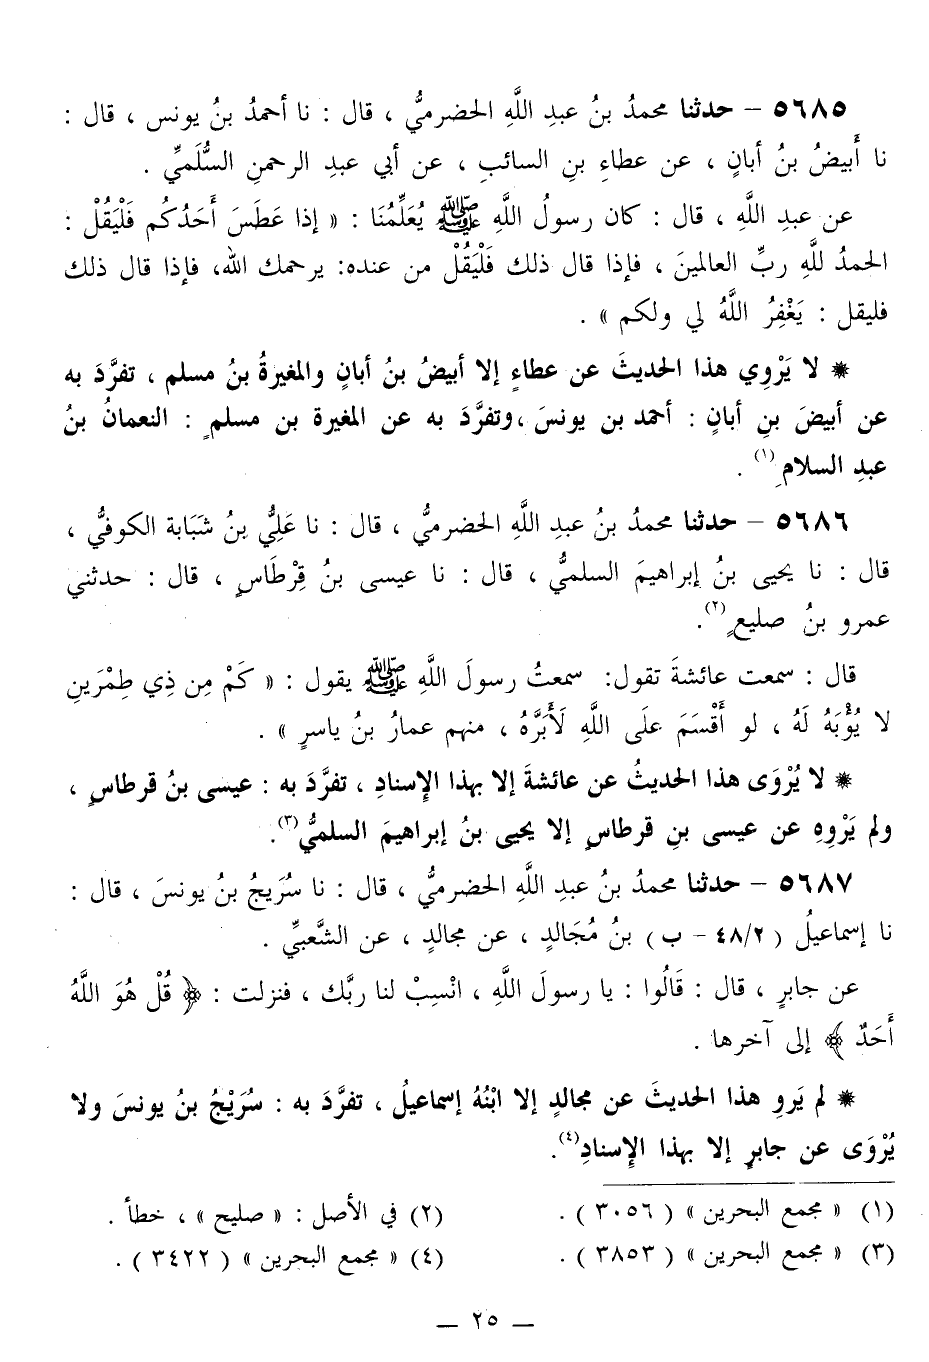 ٥٦٨٥ – حدثنا محمدُ بنُ عبدِ اللَّهِ الحضرميُّ ، قال : نا أحمدُ بنُ يونس ، قال :
نا أَبيضُ بنُ أبانٍ ، عن عطاءِ بنِ السائبِ ، عن أبي عبدِ الرحمنِ السُّلَميِّ .
عن عبدِ اللَّهِ ، قال : كان رسولُ اللَّهِ ﷺ يُعَلِّمُنَا : « إذا عَطَسَ أَحَدُكُم فَلْيَقُلْ :
الحمدُ للَّهِ ربِّ العالمينَ ، فإذا قال ذلك فَلْيَقُلْ من عنده: يرحمك الله، فإذا قال ذلك
فليقل : يَغْفِرُ اللَّهُ لي ولكم » .
* لا يَرْوِي هذا الحديثَ عن عطاءٍ إلا أبيضُ بنُ أبانٍ والمغيرةُ بنُ مسلم ، تفرَّدَ به
عن أبيضَ بنِ أبانٍ : أحمد بن يونسَ ،وتفرَّدَ به عن المغيرة بن مسلمٍ : النعمانُ بنُ
عبدِ السلامِ (١) .
٥٦٨٦ – حدثنا محمدُ بنُ عبدِ اللَّهِ الحضرميُّ ، قال : نا عَلِيُّ بنُ شَبَابة الكوفيُّ ،
قال : نا يحيى بنُ إبراهيمَ السلميُّ ، قال : نا عيسى بنُ قِرْطَاسٍ ، قال : حدثني
عمرو بنُ صليعٍ (٢).
قال : سمعت عائشةَ تقول: سمعتُ رسولَ اللَّهِ ﷺ يقول : « كَمْ مِن ذِي طِمْرَينِ
لا يُؤْبَهُ لَهُ ، لو أَقْسَمَ علَى اللَّهِ لَأَبَرَّهُ ، منهم عمارُ بنُ ياسرٍ » .
* لا يُرْوَى هذا الحديثُ عن عائشةَ إلا بهذا الإِسنادِ ، تفرَّدَ به : عيسى بنُ قرطاسٍ ،
ولم يَرْوِهِ عن عيسى بنِ قرطاسٍ إلا يحيى بنُ إبراهيمَ السلميُّ (٣).
٥٦٨٧ – حدثنا محمدُ بنُ عبدِ اللَّهِ الحضرميُّ ، قال : نا سُرَيجُ بنُ يونسَ ، قال :
نا إسماعيلُ ( ٤٨/٢ – ب ) بنُ مُجَالدٍ ، عن مجالدٍ ، عن الشَّعبيِّ .
عن جابرٍ ، قال : قَالُوا : يا رسولَ اللَّهِ ، انْسِبْ لنا ربَّك ، فنزلت : ﴿ قُلْ هُوَ اللَّهُ
أَحَدٌ ﴾ إلى آخرها .
* لم يَروِ هذا الحديثَ عن مجالدٍ إلا ابْنُهُ إسماعيلُ ، تفرَّدَ به : سُرَيْجُ بنُ يونسَ ولا
يُرْوَى عن جابرٍ إلا بهذا الإِسنادِ (٤).
(١) « مجمع البحرين » ( ٣٠٥٦ ) .
(٢) في الأصل : « صليح » ، خطأ .
(٣) « مجمع البحرين » ( ٣٨٥٣ ) .
(٤) « مجمع البحرين » ( ٣٤٢٢ ) .
– ٢٥ –